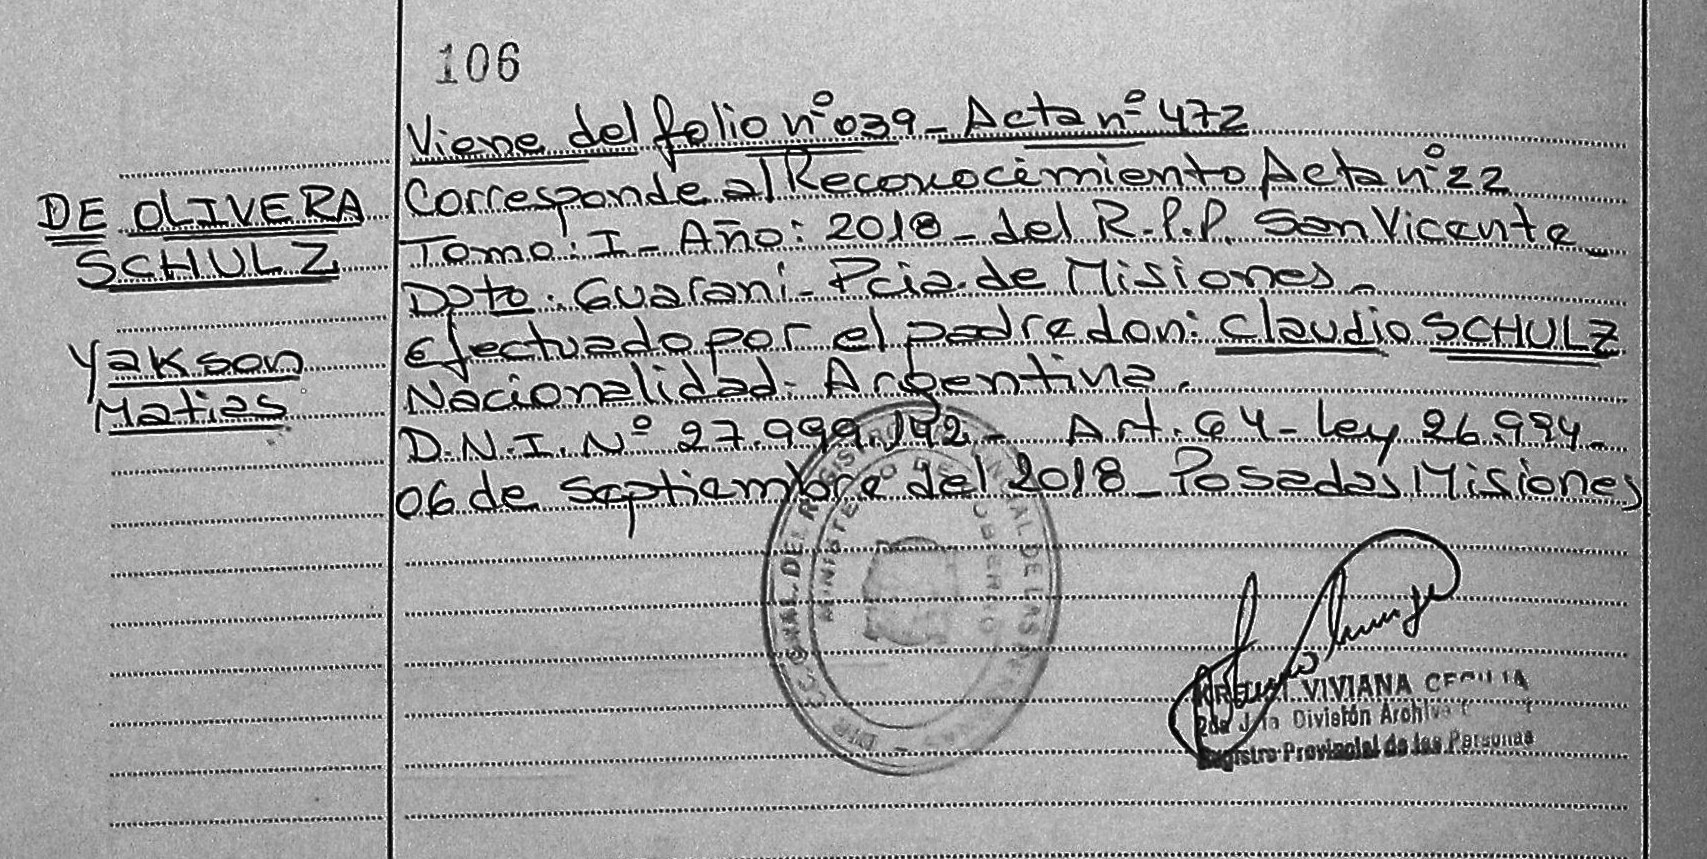 106
Viene del folio nº 039 - Acta nº 472
DE OLIVERA
SCHULZ
Yakson
Matias
Corresponde al Reconocimiento Acta nº 22
Tomo: I - Año: 2018 - del R.P.P. San Vicente
Dpto. Guaraní - Pcia. de Misiones -
Efectuado por el padre don: Claudio SCHULZ
Nacionalidad: Argentina.
D.N.I. Nº 27.999.142 - Art. 64 - Ley 26.994 -
06 de Septiembre del 2018 - Posadas, Misiones
MINISTERIO DE GOBIERNO
VIVIANA CECILIA
División Archivo
Registro Provincial de las Personas